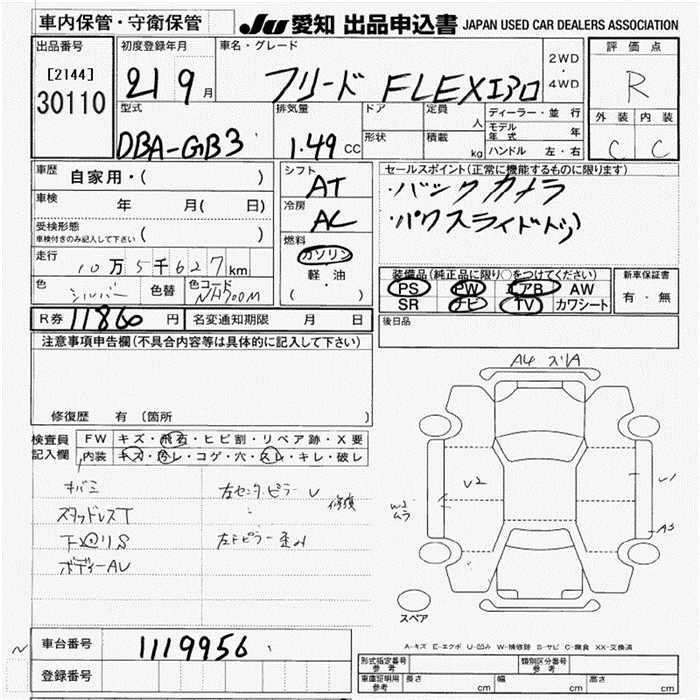 車内保管・守衛保管
JU 愛知 出品申込書 JAPAN USED CAR DEALERS ASSOCIATION
出品番号
[2144]
30110
初度登録年月
21 9月
車名・グレード
フリード FLEX
2WD
・
4WD
評価点
R
外装 内装
C C
型式
DBA-GB3
排気量
1.49 CC
ドア
形状
定員
人
積載
kg
ディーラー・並行
モデル年式 年
ハンドル 左・右
車歴
自家用・( )
車検
年 月( 日)
受検形態
車検付きのみ記入して下さい ( )
走行
10万5千627km
色
シルバー
色替
色コード
NH700M
シフト
AT
冷房
AC
燃料
ガソリン
軽・油
( )
セールスポイント(正常に機能するものに限ります)
・バックカメラ
・パワスライドドア
装備品(純正品に限り○をつけてください)
PS PW エアB AW
SR ナビ TV カワシート
新車保証書
有・無
後日品
R券 11860 円
名変通知期限 月 日
注意事項申告欄(不具合内容等は具体的に記入して下さい)
修復歴 有 (箇所 )
検査員記入欄
FW キズ・飛石・ヒビ割・リペア跡・X要
内装 キズ・汚レ・コゲ・穴・スレ・キレ・破レ
キバミ
スタッドレスT
下回りS
ボディーAU
左センタピラーU 修復
左Fピラー歪み
A4 スリA
U2
W3
ムラ
U1
A3
スペア
A-キズ E-エクボ U-凹み W-補修跡 S-サビ C-腐食 XX-交換済
車台番号
1119956
登録番号
型式指定番号
参考
類別区分番号
参考
車庫証明用
参考
長さ cm
幅 cm
高さ cm